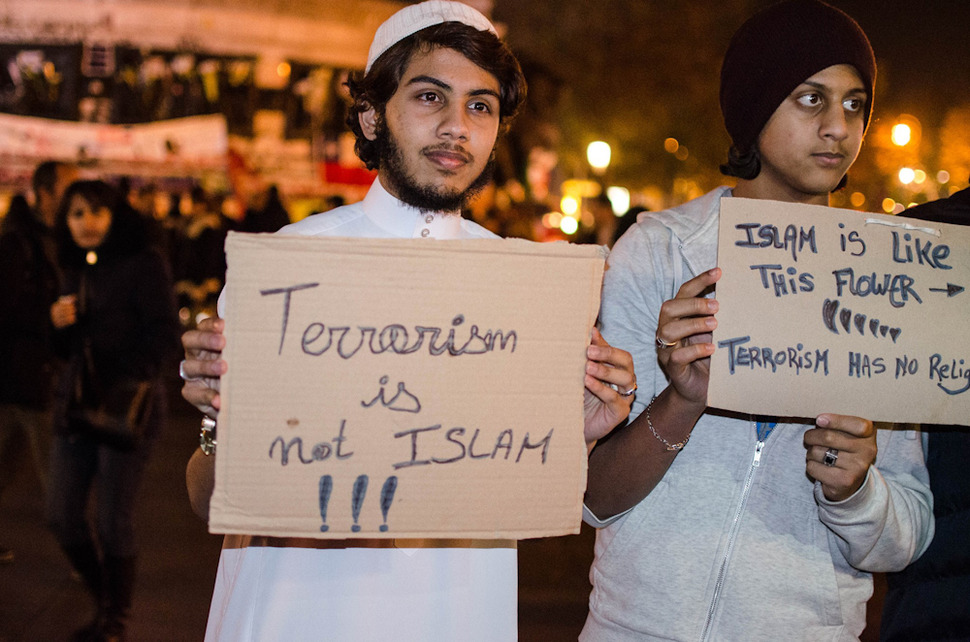 Terrorism
is
not ISLAM
!!!
ISLAM is Like
This FLOWER →
TERRORISM HAS NO Relig